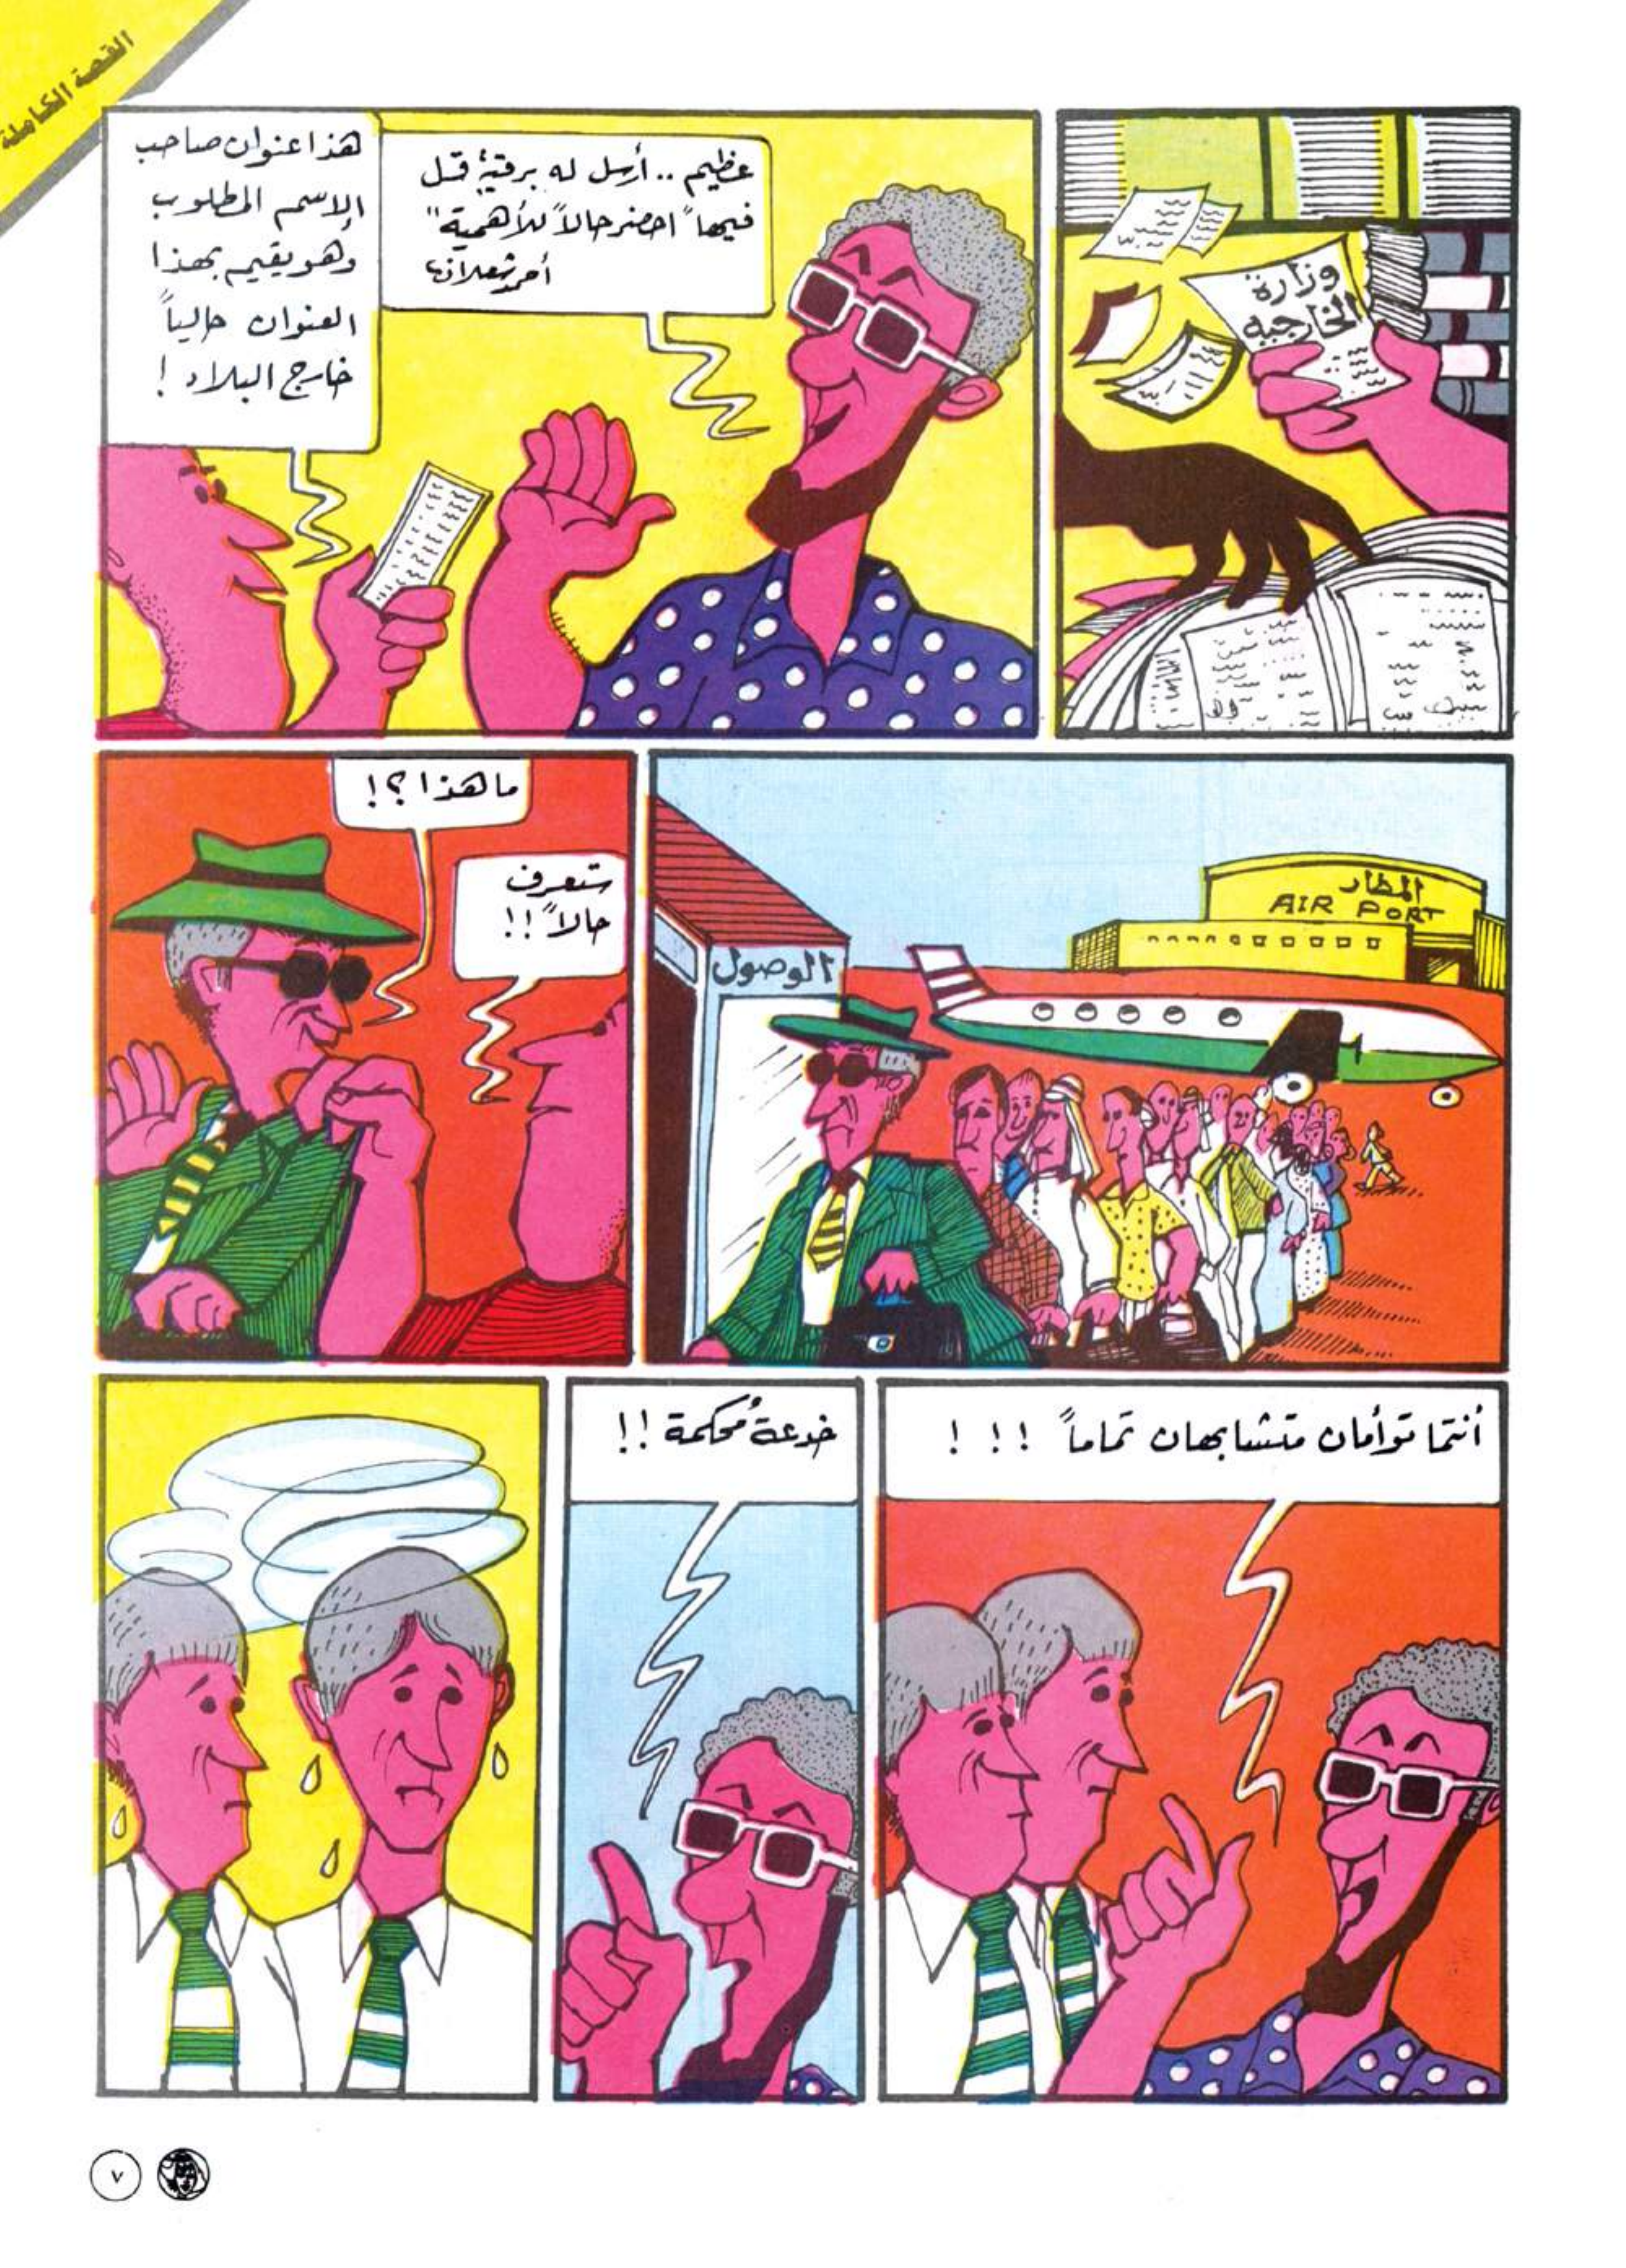 القصة الكاملة
وزارة
الخارجية
هذا عنوان صاحب
الإسم المطلوب
وهو يقيم بهذا
العنوان حالياً
خارج البلاد !
عظيم .. أرسل له برقية قل
فيها "احضر حالاً للأهمية"
المطار
AIR PORT
الوصول
ما هذا ؟!
ستعرف
حالاً !!
أنتما توأمان متشابهان تماماً ! ! !
خدعة مُحكمة !!
٧